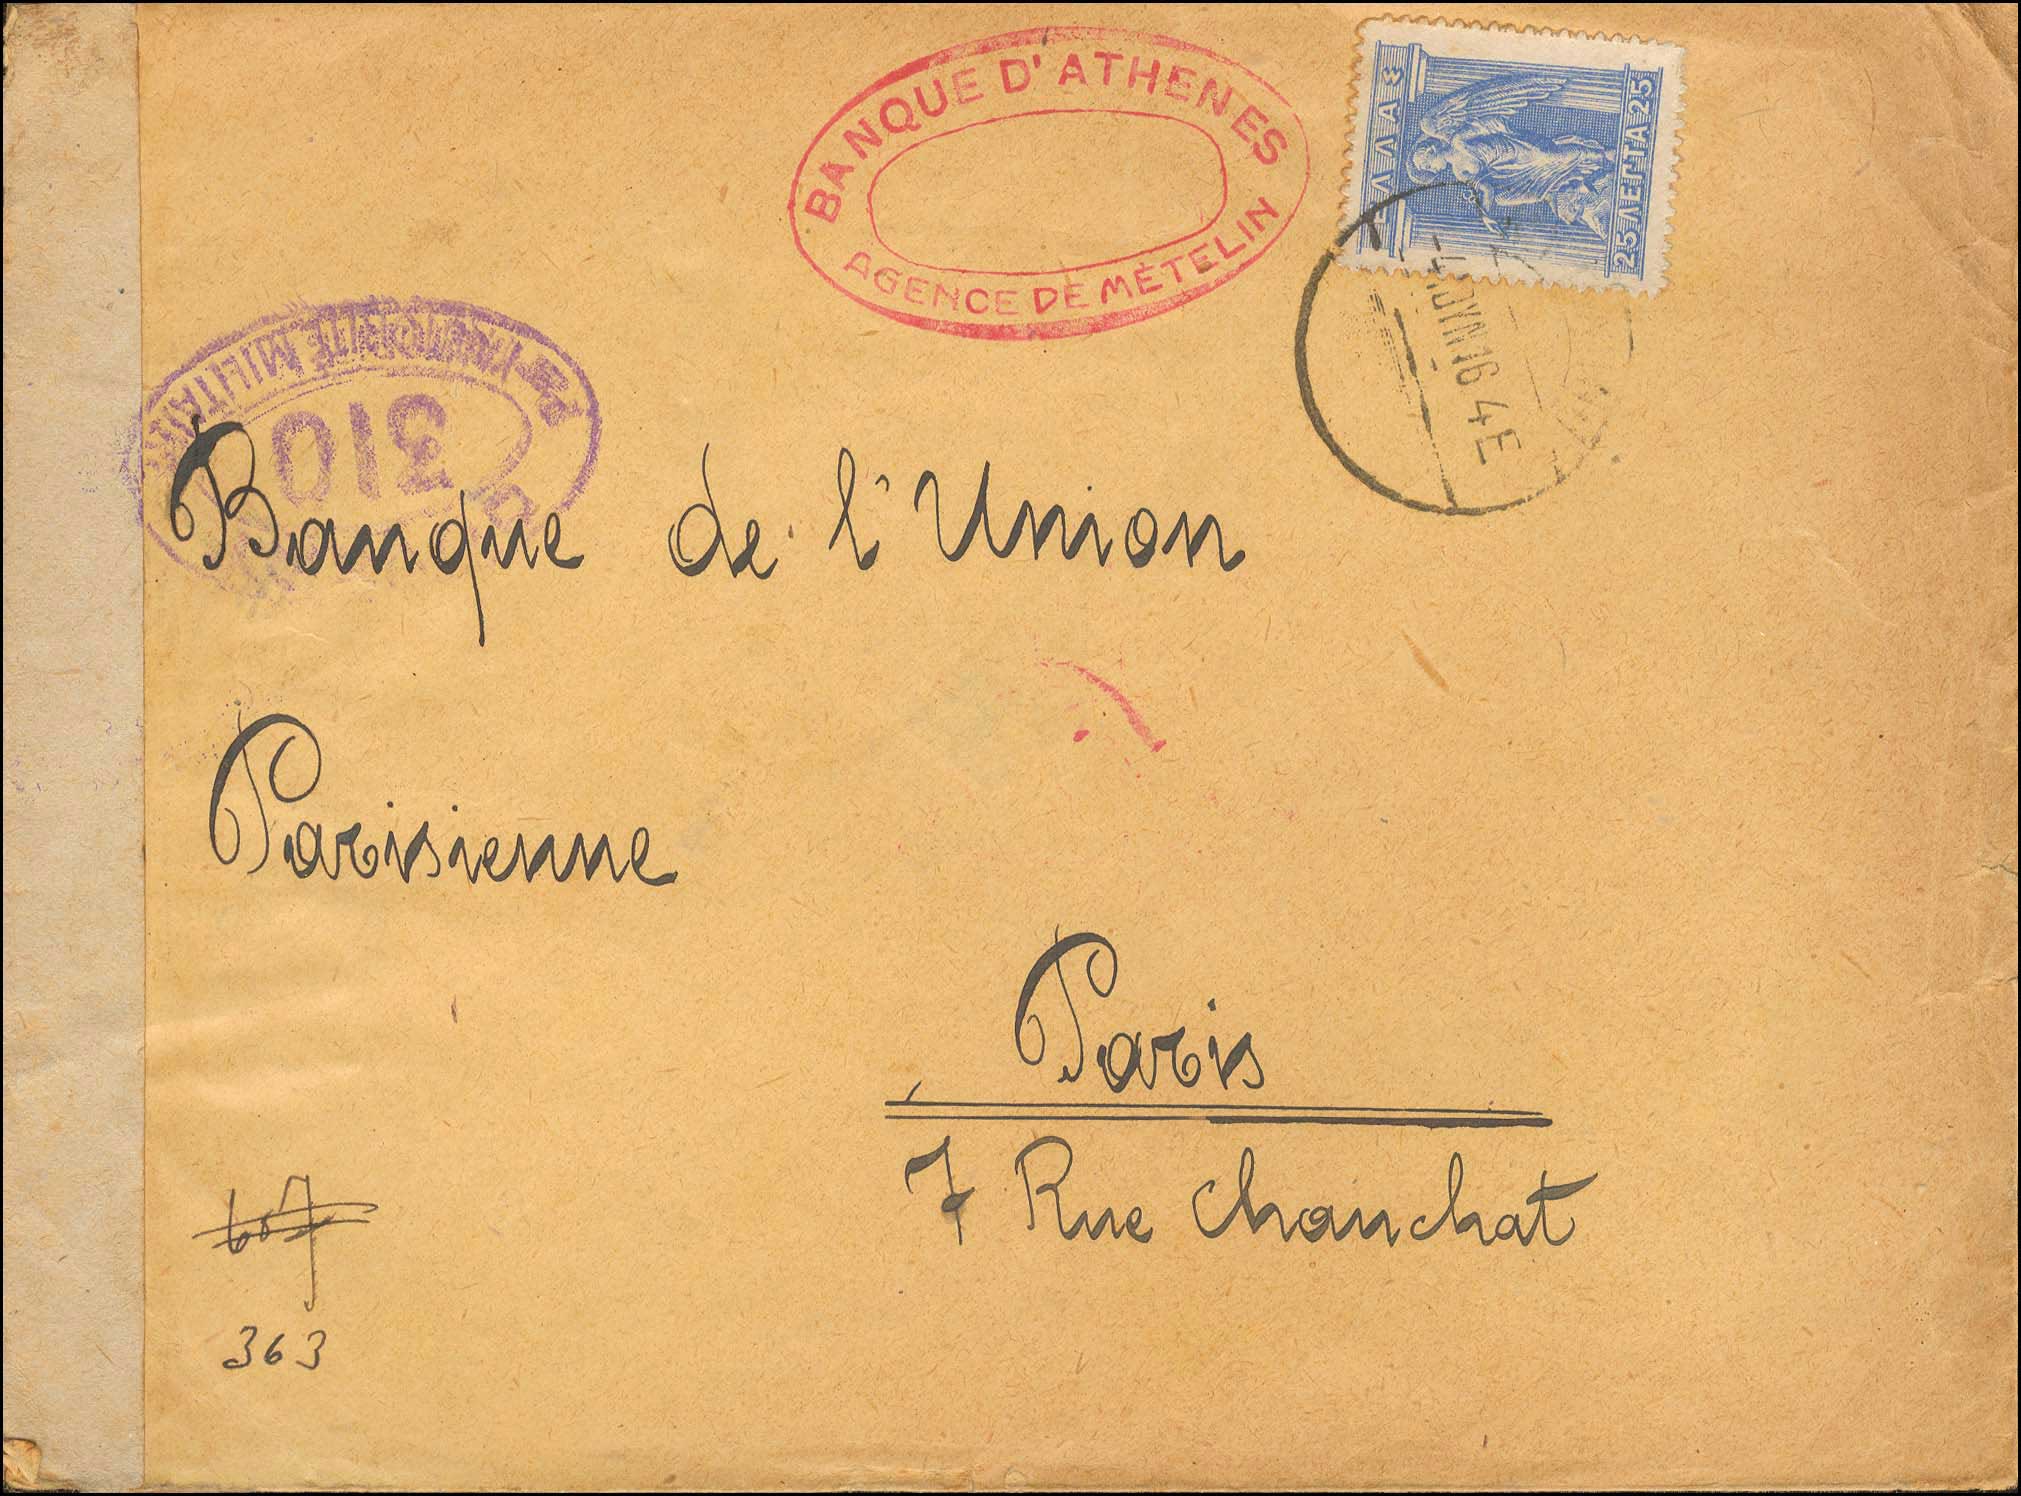 BANQUE D'ATHENES
AGENCE DE MÉTELIN
ΕΛΛΑΣ
25 ΛΕΠΤΑ 25
-4 ΙΟΥΝ 16 4Ε
MILITAIRE
310
Banque de l'Union
Parisienne
Paris
7 Rue Chauchat
607
363